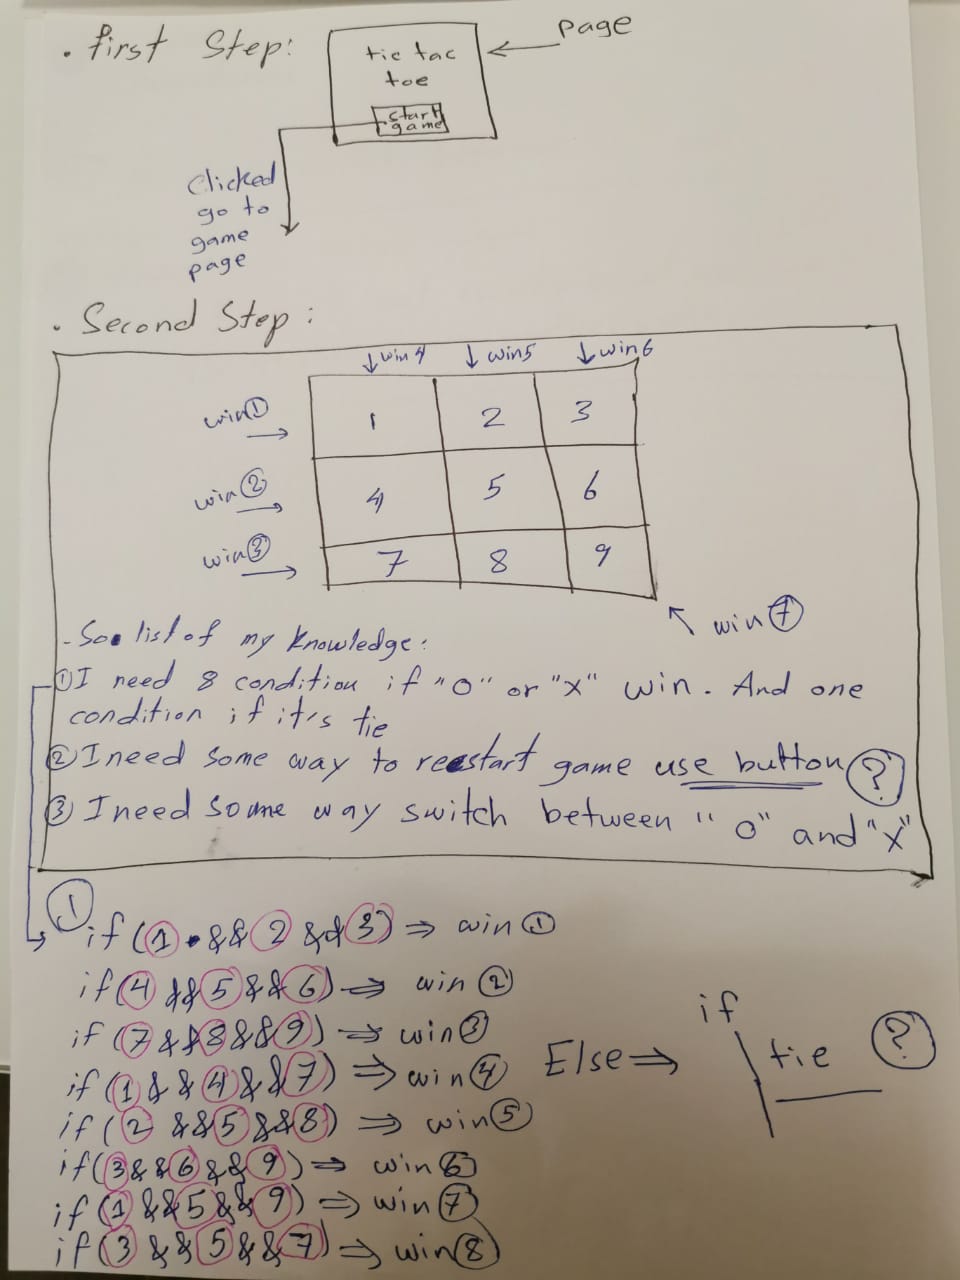 . first Step:
page
tic tac
toe
start
game
Clicked
go to
game
page
. Second Step:
↓ win 4 ↓ win5 ↓ win6
win① →
1 2 3
win② →
4 5 6
win③ →
7 8 9
win⑦
- So list of my knowledge:
① I need 8 condition if "O" or "X" win. And one
condition if it's tie
② I need some way to restart game use button ?
③ I need some way switch between "O" and "X"
①
if (1 && 2 && 3) ⇒ win ①
if (4 && 5 && 6) ⇒ win ②
if (7 && 8 && 9) ⇒ win ③
if (1 && 4 && 7) ⇒ win ④
if (2 && 5 && 8) ⇒ win ⑤
if (3 && 6 && 9) ⇒ win ⑥
if (1 && 5 && 9) ⇒ win ⑦
if (3 && 5 && 7) ⇒ win ⑧
Else ⇒ if
tie ?